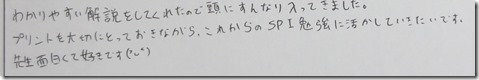 わかりやすい解説をしてくれたので頭にすんなり入ってきました。
プリントを大切にとっておきながら、これからのSPI勉強に活かしていきたいです。
先生面白くて好きです(^ω^)